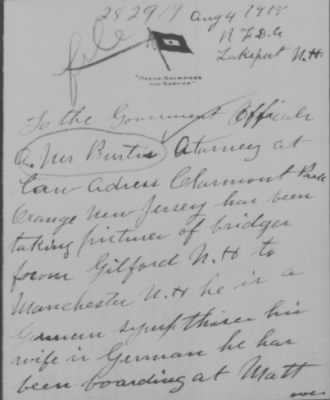 282919
Aug 4 1918
file
R.F.D. 6
Lakeport N.H.
"Peace, Sacrifices
and Service"
To the Goverment Officials
A. Mr Bustis Atarney at
Law adress Claramont Park
Orange New Jersey has been
taking pictures of bridges
from Gilford N.H to
Manchester N.H he is a
German sympthiser his
wife is German he has
been boarding at Matt
over